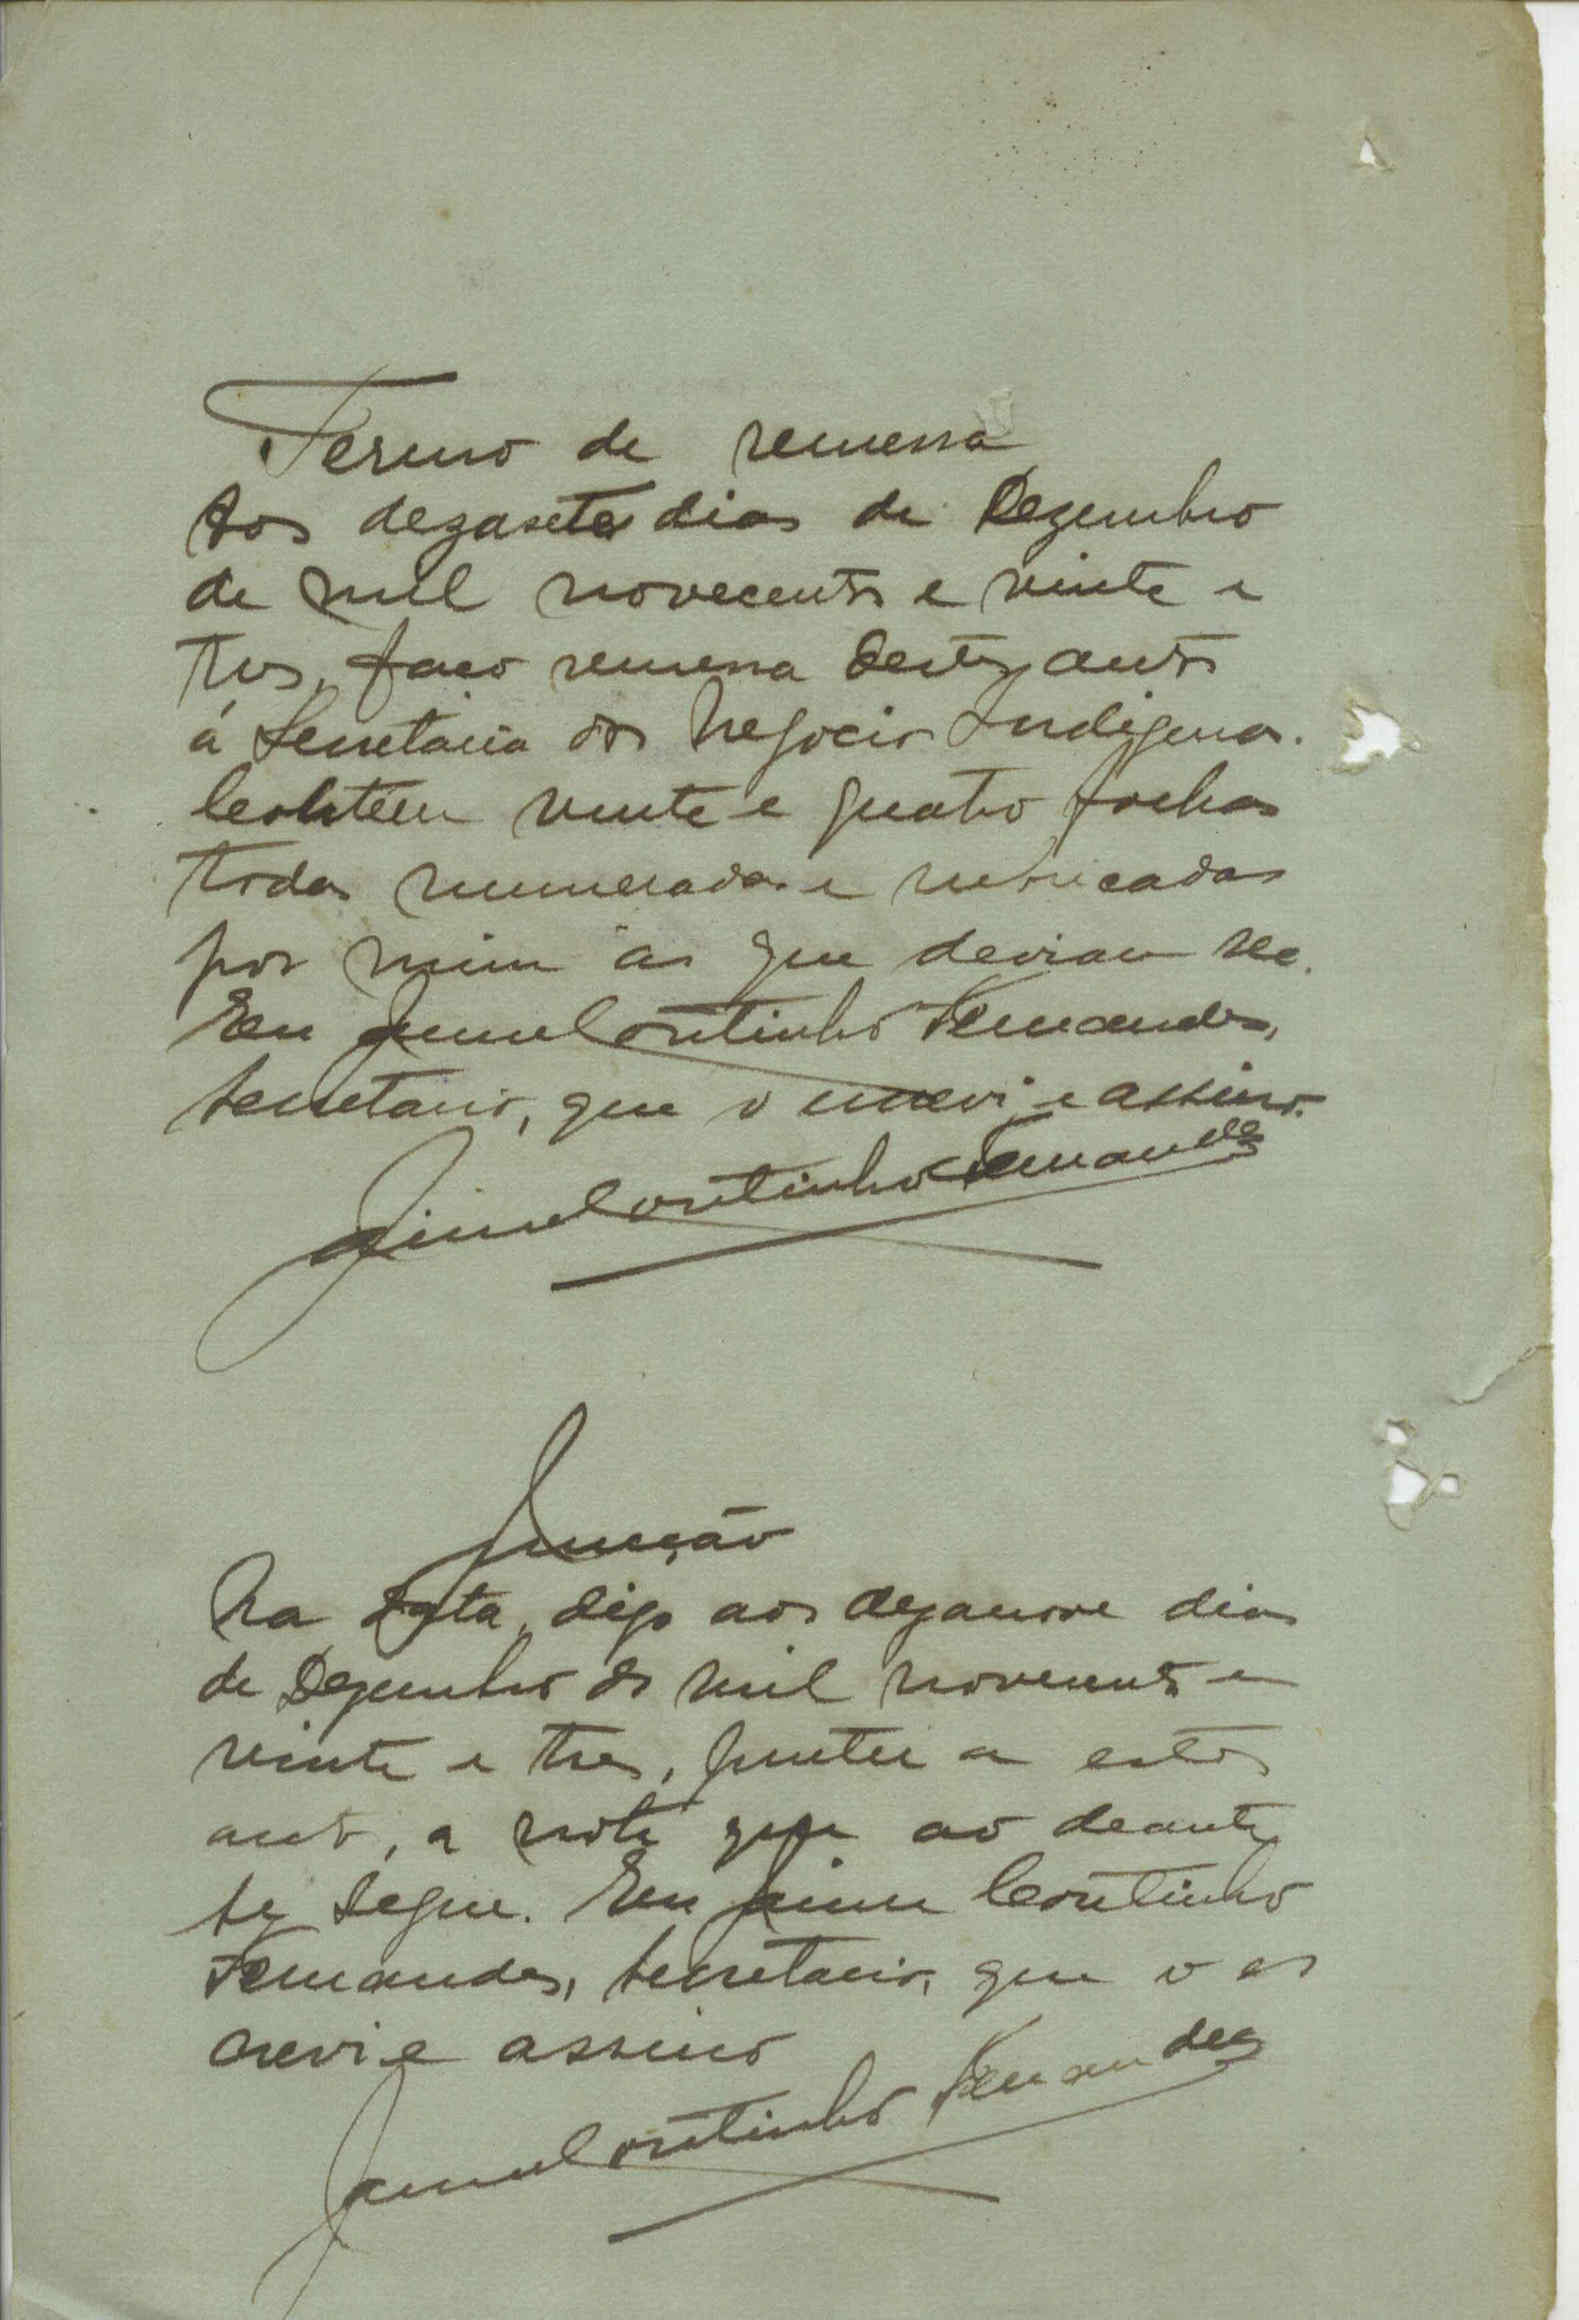 Termo de remessa
Aos dezasete dias de Dezembro
de mil novecentos e vinte e
tres, faco remessa destes autos
á Secretaria dos Negocios Indigenas.
Contém vinte e quatro folhas
todas numeradas e rubricadas
por mim as que deviam ser.
Eu Jaime Coutinho Fernandes,
secretario, que o escrevi e assino.
Jaime Coutinho Fernandes
Juncção
Na data, digo aos dezanove dias
de Dezembro de mil novecentos e
vinte e tres, juntei a estes
autos, a nota que ao deante
se segue. Eu Jaime Coutinho
Fernandes, secretario, que o es
crevi e assino
Jaime Coutinho Fernandes